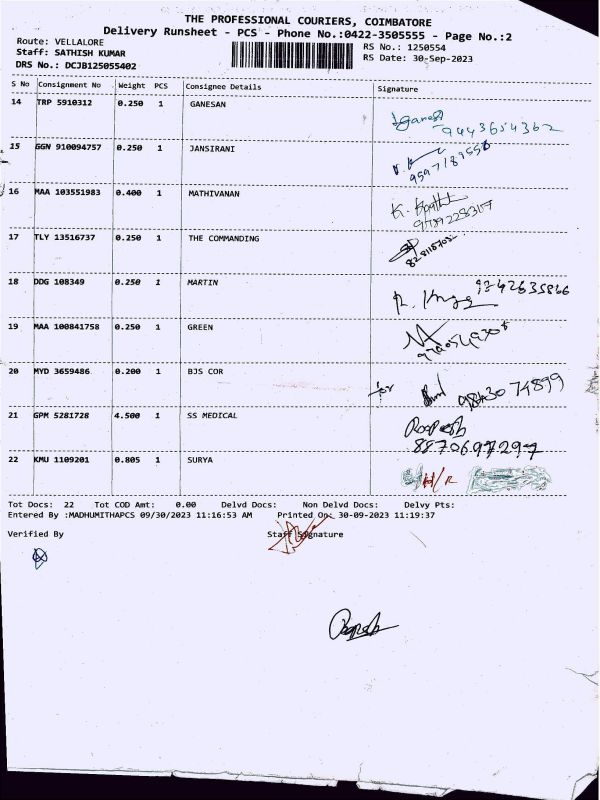 THE PROFESSIONAL COURIERS, COIMBATORE
Delivery Runsheet - PCS - Phone No.:0422-3505555 - Page No.:2
Route: VELLALORE
RS No.: 1250554
Staff: SATHISH KUMAR
RS Date: 30-Sep-2023
DRS No.: DCJB125055402
S No Consignment No Weight PCS Consignee Details Signature
14 TRP 5910312 0.250 1 GANESAN
9443654362
15 GGN 910094757 0.250 1 JANSIRANI
16 MAA 103551983 0.400 1 MATHIVANAN
17 TLY 13516737 0.250 1 THE COMMANDING
18 DDG 108349 0.250 1 MARTIN
19 MAA 100841758 0.250 1 GREEN
20 MYD 3659486 0.200 1 BJS COR
for 98430 74899
21 GPM 5281728 4.500 1 SS MEDICAL
Roopesh
8870697297
22 KMU 1109201 0.805 1 SURYA
Tot Docs: 22 Tot COD Amt: 0.00 Delvd Docs: Non Delvd Docs: Delvy Pts:
Entered By :MADHUMITHAPCS 09/30/2023 11:16:53 AM Printed On: 30-09-2023 11:19:37
Verified By Staff Signature
Roopesh